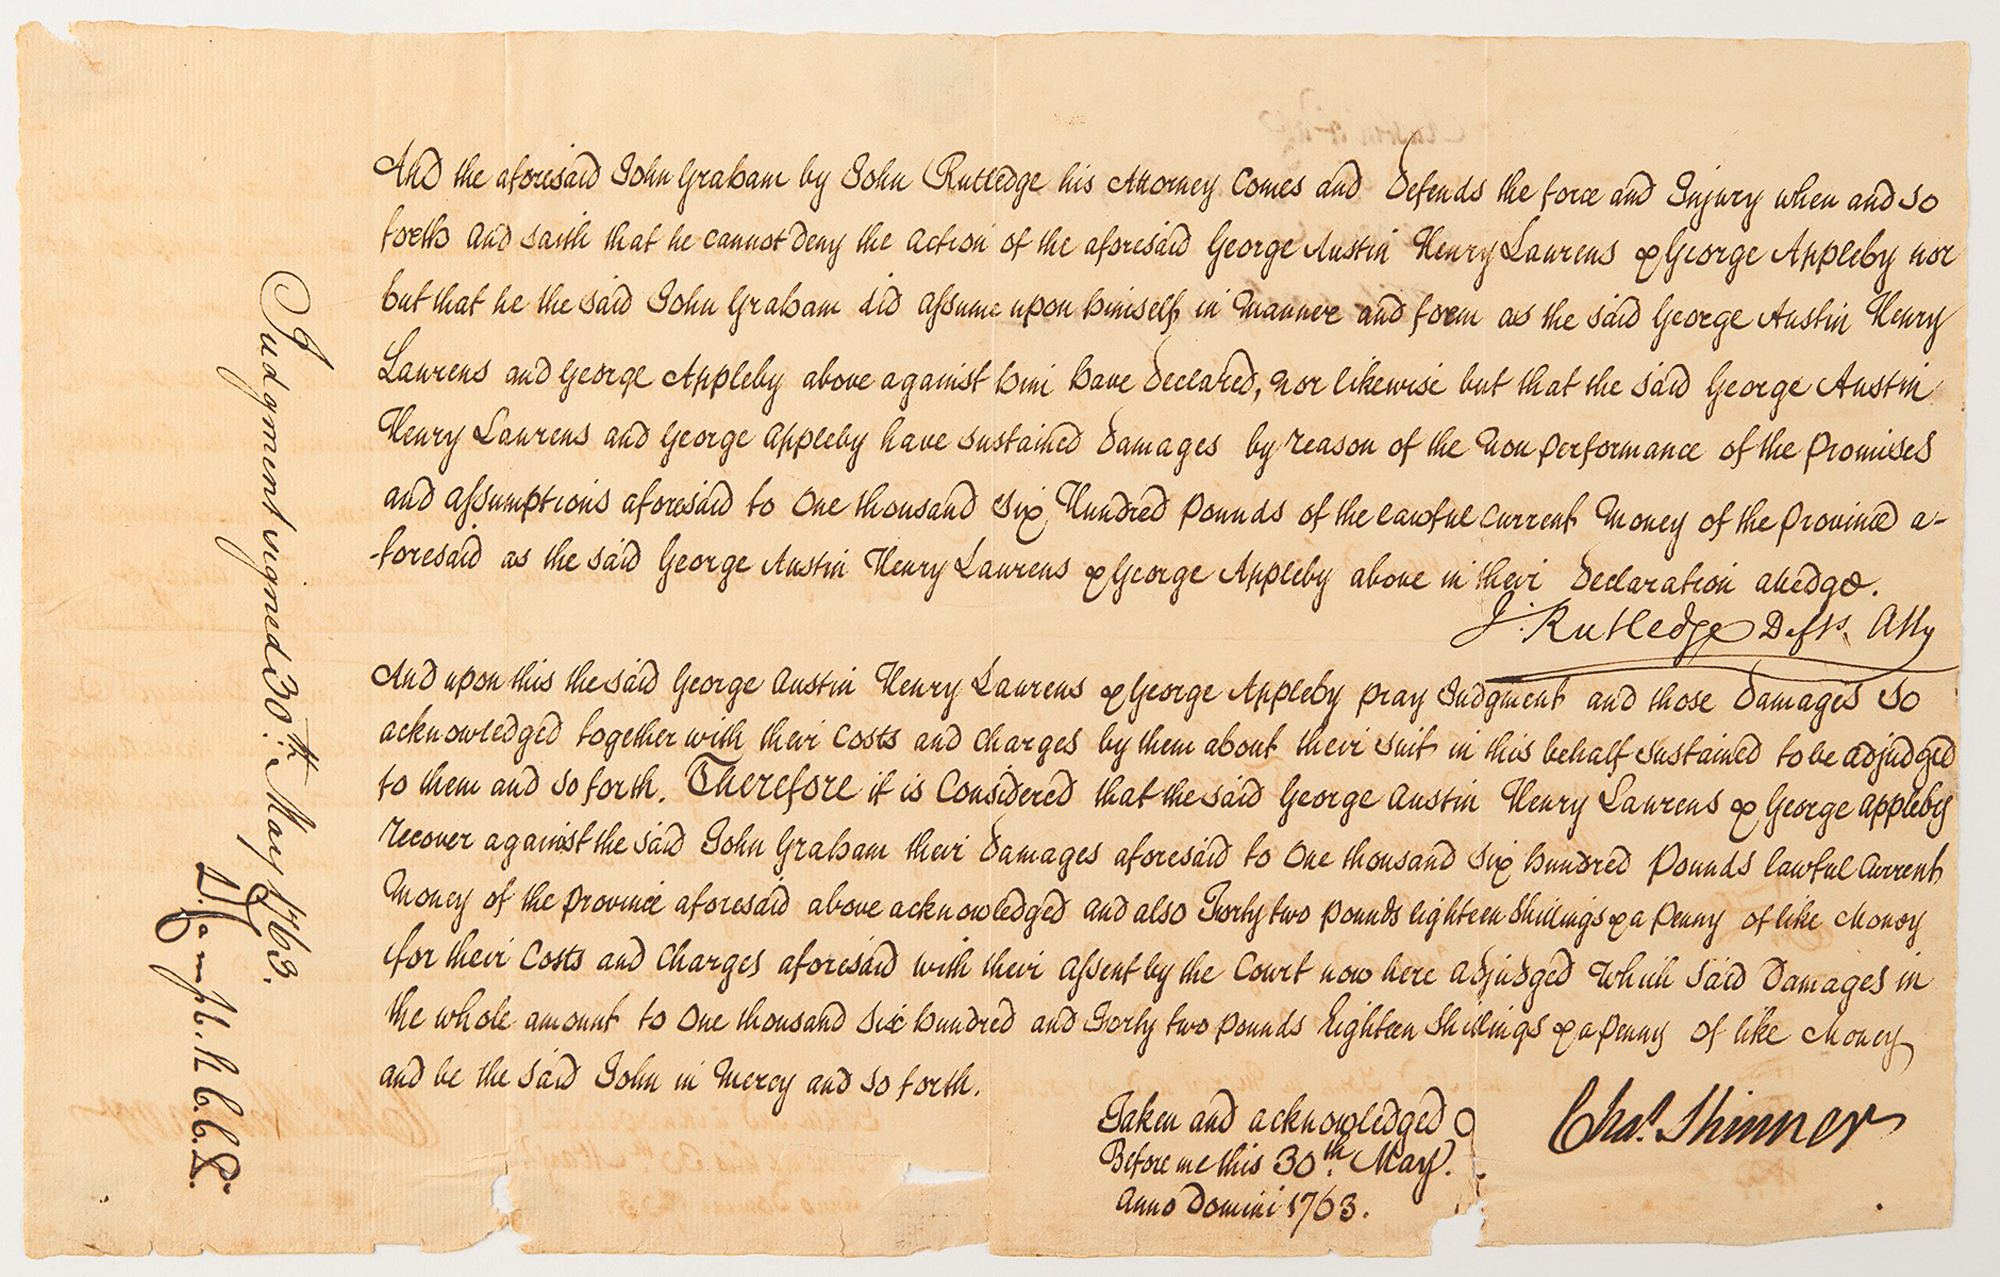 And the aforesaid John Graham by John Rutledge his Attorney Comes and Defends the force and Injury when and so
forth and saith that he cannot deny the action of the aforesaid George Austin Henry Laurens & George Appleby nor
but that he the said John Graham did assume upon himself in manner and form as the said George Austin Henry
Laurens and George Appleby above against him have declared, nor likewise but that the said George Austin
Henry Laurens and George Appleby have sustained Damages by reason of the Non performance of the promises
and assumptions aforesaid to One thousand six Hundred pounds of the lawful current Money of the province a-
-foresaid as the said George Austin Henry Laurens & George Appleby above in their Declaration alledge.
J. Rutledge Defts. Atty
And upon this the said George Austin Henry Laurens & George Appleby pray Judgment and those Damages so
acknowledged together with their Costs and Charges by them about their suit in this behalf sustained to be adjudged
to them and so forth. Therefore it is Considered that the said George Austin Henry Laurens & George Appleby
recover against the said John Graham their Damages aforesaid to One thousand six hundred Pounds lawful Current
Money of the province aforesaid above acknowledged and also Forty two pounds Eighteen Shillings & a penny of like Money
for their Costs and Charges aforesaid with their assent by the Court now here adjudged which said Damages in
the whole amount to One thousand six hundred and Forty two pounds Eighteen Shillings & a penny of like Money
and be the said John in Mercy and so forth.
Taken and acknowledged
Before me this 30th. May.
Anno Domini 1763.
Chas. Shinner
Judgment signed 30th. May 1763.